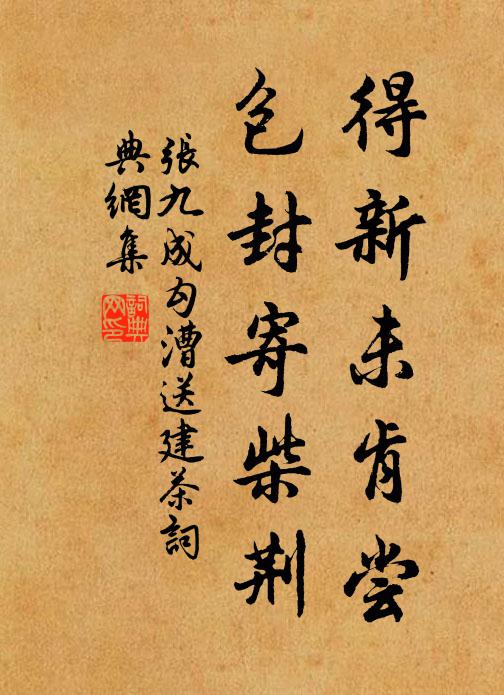 得新未肯尝
包封寄柴荆
張九成勾漕送建茶詞
典網集
詞典網印